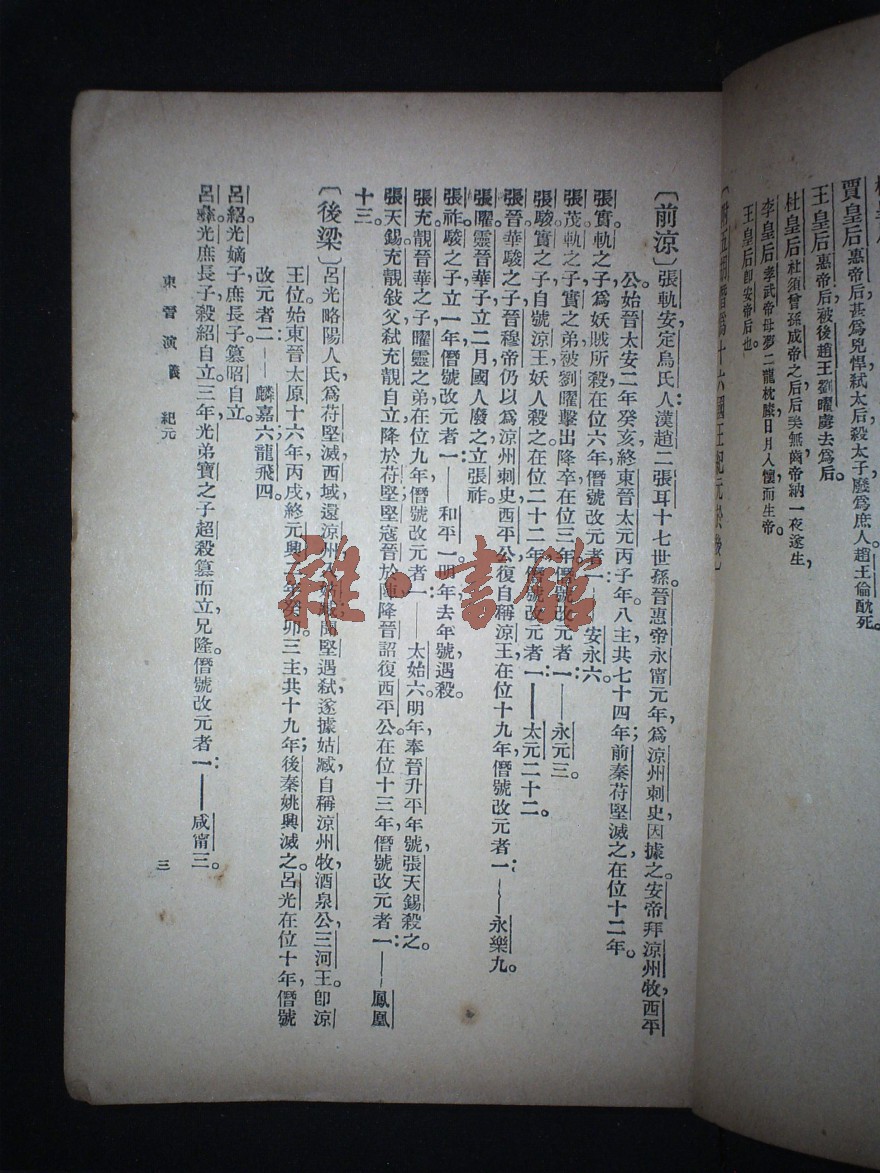 賈皇后惠帝后甚爲兇悍弑太后殺太子廢爲庶人趙王倫酖死。
王皇后惠帝后被後趙王劉曜虜去爲后。
杜皇后杜須曾孫成帝之后后
無齒帝納一夜遂生,
李皇后孝武帝母夢二龍枕膝日月入懷而生帝。
王皇后卽安帝后也。
僭爲十六國王紀元於後〕
〔前涼〕張軌安定烏氏人漢趙二張耳十七世孫。晉惠帝永甯元年,爲涼州刺史因據之。安帝拜涼州牧,西平
公。始晉太安二年癸亥,終東晉太元丙子年。八主共七十四年;前秦苻堅滅之。在位十二年。
張實軌之子爲妖賊所殺在位六年,僭號改元者一:——安永六。
張茂軌之子實之弟被劉曜擊出降卒在位三年。僭號改元者一:——永元三。
張駿實之子自號涼王妖人殺之。在位二十二年,僭號改元者一:——太元二十二。
張晉華駿之子晉穆帝仍以爲涼州刺史西平公復自稱涼王在位十九年,僭號改元者一:——永樂九。
張曜靈晉華子立二月國人廢之立張祚。
張祚駿之子立一年,僭號改元者一:——和平一。明年去年號遇殺。
張充靚晉華之子曜靈之弟在位九年,僭號改元者一:——太始六。明年,奉晉升平年號,張天錫殺之。
張天錫充靚鼓父弑充靚自立降於苻堅;堅寇晉於陣降晉詔復西平公。在位十三年,僭號改元者一:——鳳凰
十三。
〔後梁〕呂光略陽人氏,爲苻堅滅西域,還涼州
堅遇弑遂據姑臧,自稱涼州牧,酒泉公三河王。卽涼
王位始東晉太原十六年丙戌終元興
年癸卯。三主共十九年;後秦姚興滅之。呂光在位十年,僭號
改元者二:——麟嘉六;龍飛四。
呂紹光嫡子,庶長子。簒昭自立。
呂纂光庶長子,殺紹自立。三年,光弟寶之子超殺簒而立兄隆。僭號改元者一:——咸甯三。
東晉演義 紀元
三
雜·書館